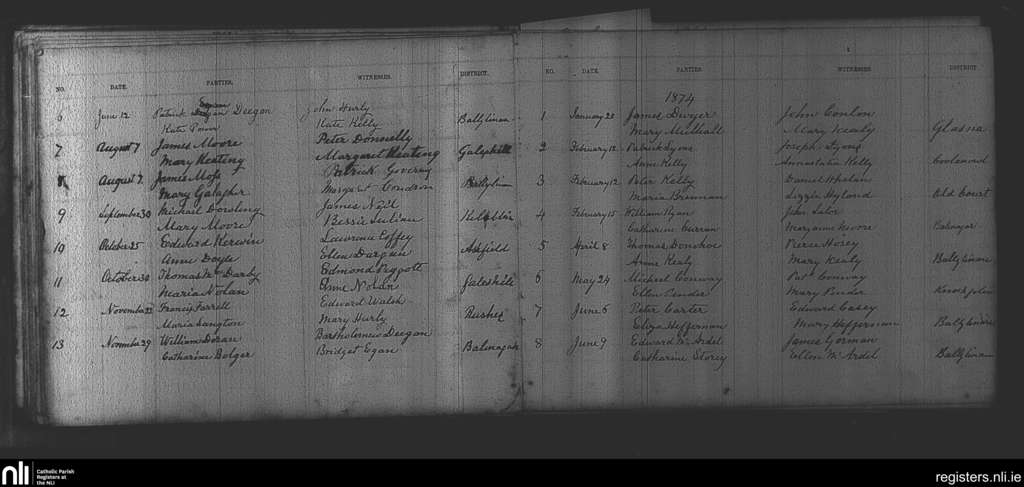 NO. DATE. PARTIES. WITNESSES. DISTRICT.
6 June 12 Patrick Deegan John Hurly Ballylinan
Kate Kelly
7 August 7 James Moore Peter Donnelly
Mary Keating Margaret Keating
8 August 7 James Moss Patrick
Mary Galagher Margaret Condron
9 September 30 Michael Dowling James
Mary Moore Bessie
10 October 25 Edward Kerwin Lawrence Coffey Ashfield
Anne Doyle Ellen Durgun
11 October 30 Thomas Mc Darby Edmond Piggott
Maria Nolan Anne Nolan
12 November 22 Francis Farrell Edward Walsh Rushes
Maria Langton Mary Hurly
13 November 29 William Doran Bartholomew Deegan
Catharine Bolger Bridget Egan
NO. DATE. PARTIES. WITNESSES. DISTRICT.
1874
1 January 23 James Dwyer John Conlon
Mary Mulhall Mary Kealy
2 February 12 Patrick Lyons Joseph Lyons
Anne Kelly Annastatia Kelly
3 February 12 Peter Kelly Daniel Whelan
Maria Brennan Lizzie Hyland Old Court
4 February 15 William Ryan John Lalor
Catharine Curran Maryanne Moore
5 April 8 Thomas Donohoe Pierce Hosey
Anne Kealy Mary Kealy Ballylinan
6 May 24 Michael Conway Pat Conway
Ellen Pender Mary Pender
7 June 6 Peter Carter Edward Casey
Eliza Heffernan Mary Heffernan Ballylinan
8 June 9 Edward Mc Ardel James Gorman
Catharine Storey Ellen Mc Ardel Ballylinan
nli Catholic Parish
Registers at
the NLI
registers.nli.ie